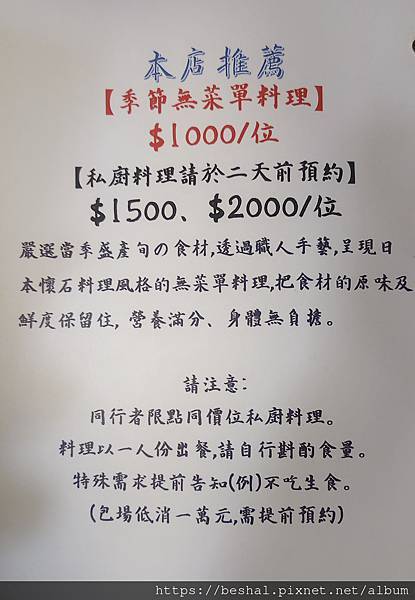 本店推薦
【季節無菜單料理】
$1000/位
【私廚料理請於二天前預約】
$1500、$2000/位
嚴選當季盛產旬の食材,透過職人手藝,呈現日
本懷石料理風格的無菜單料理,把食材的原味及
鮮度保留住,營養滿分、身體無負擔。
請注意:
同行者限點同價位私廚料理。
料理以一人份出餐,請自行斟酌食量。
特殊需求提前告知(例)不吃生食。
(包場低消一萬元,需提前預約)
https://beshal.pixnet.net/album